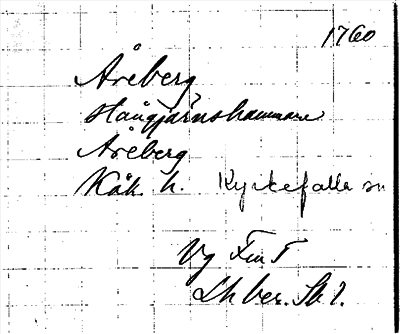 1760
Åreberg
Stångjärnshammare
Åreberg
Kåk h. Kyrkefalla sn
Vg
Lh ber. Sk 1.